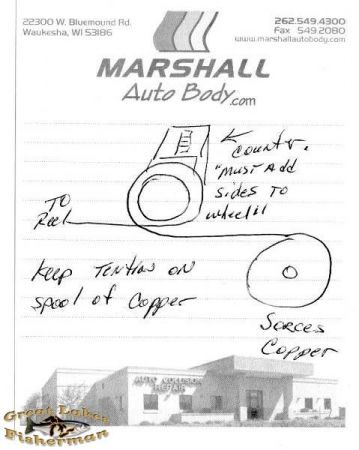 22300 W. Bluemound Rd.
Waukesha, WI 53186
262.549.4300
Fax 549.2080
www.marshallautobody.com
MARSHALL
Auto Body.com
Counter.
"Must Add
sides to
wheel"
TO
Reel
keep Tention on
spool of Copper
Sorces
Copper
AUTO COLLISION
REPAIR
Great Lakes
Fisherman